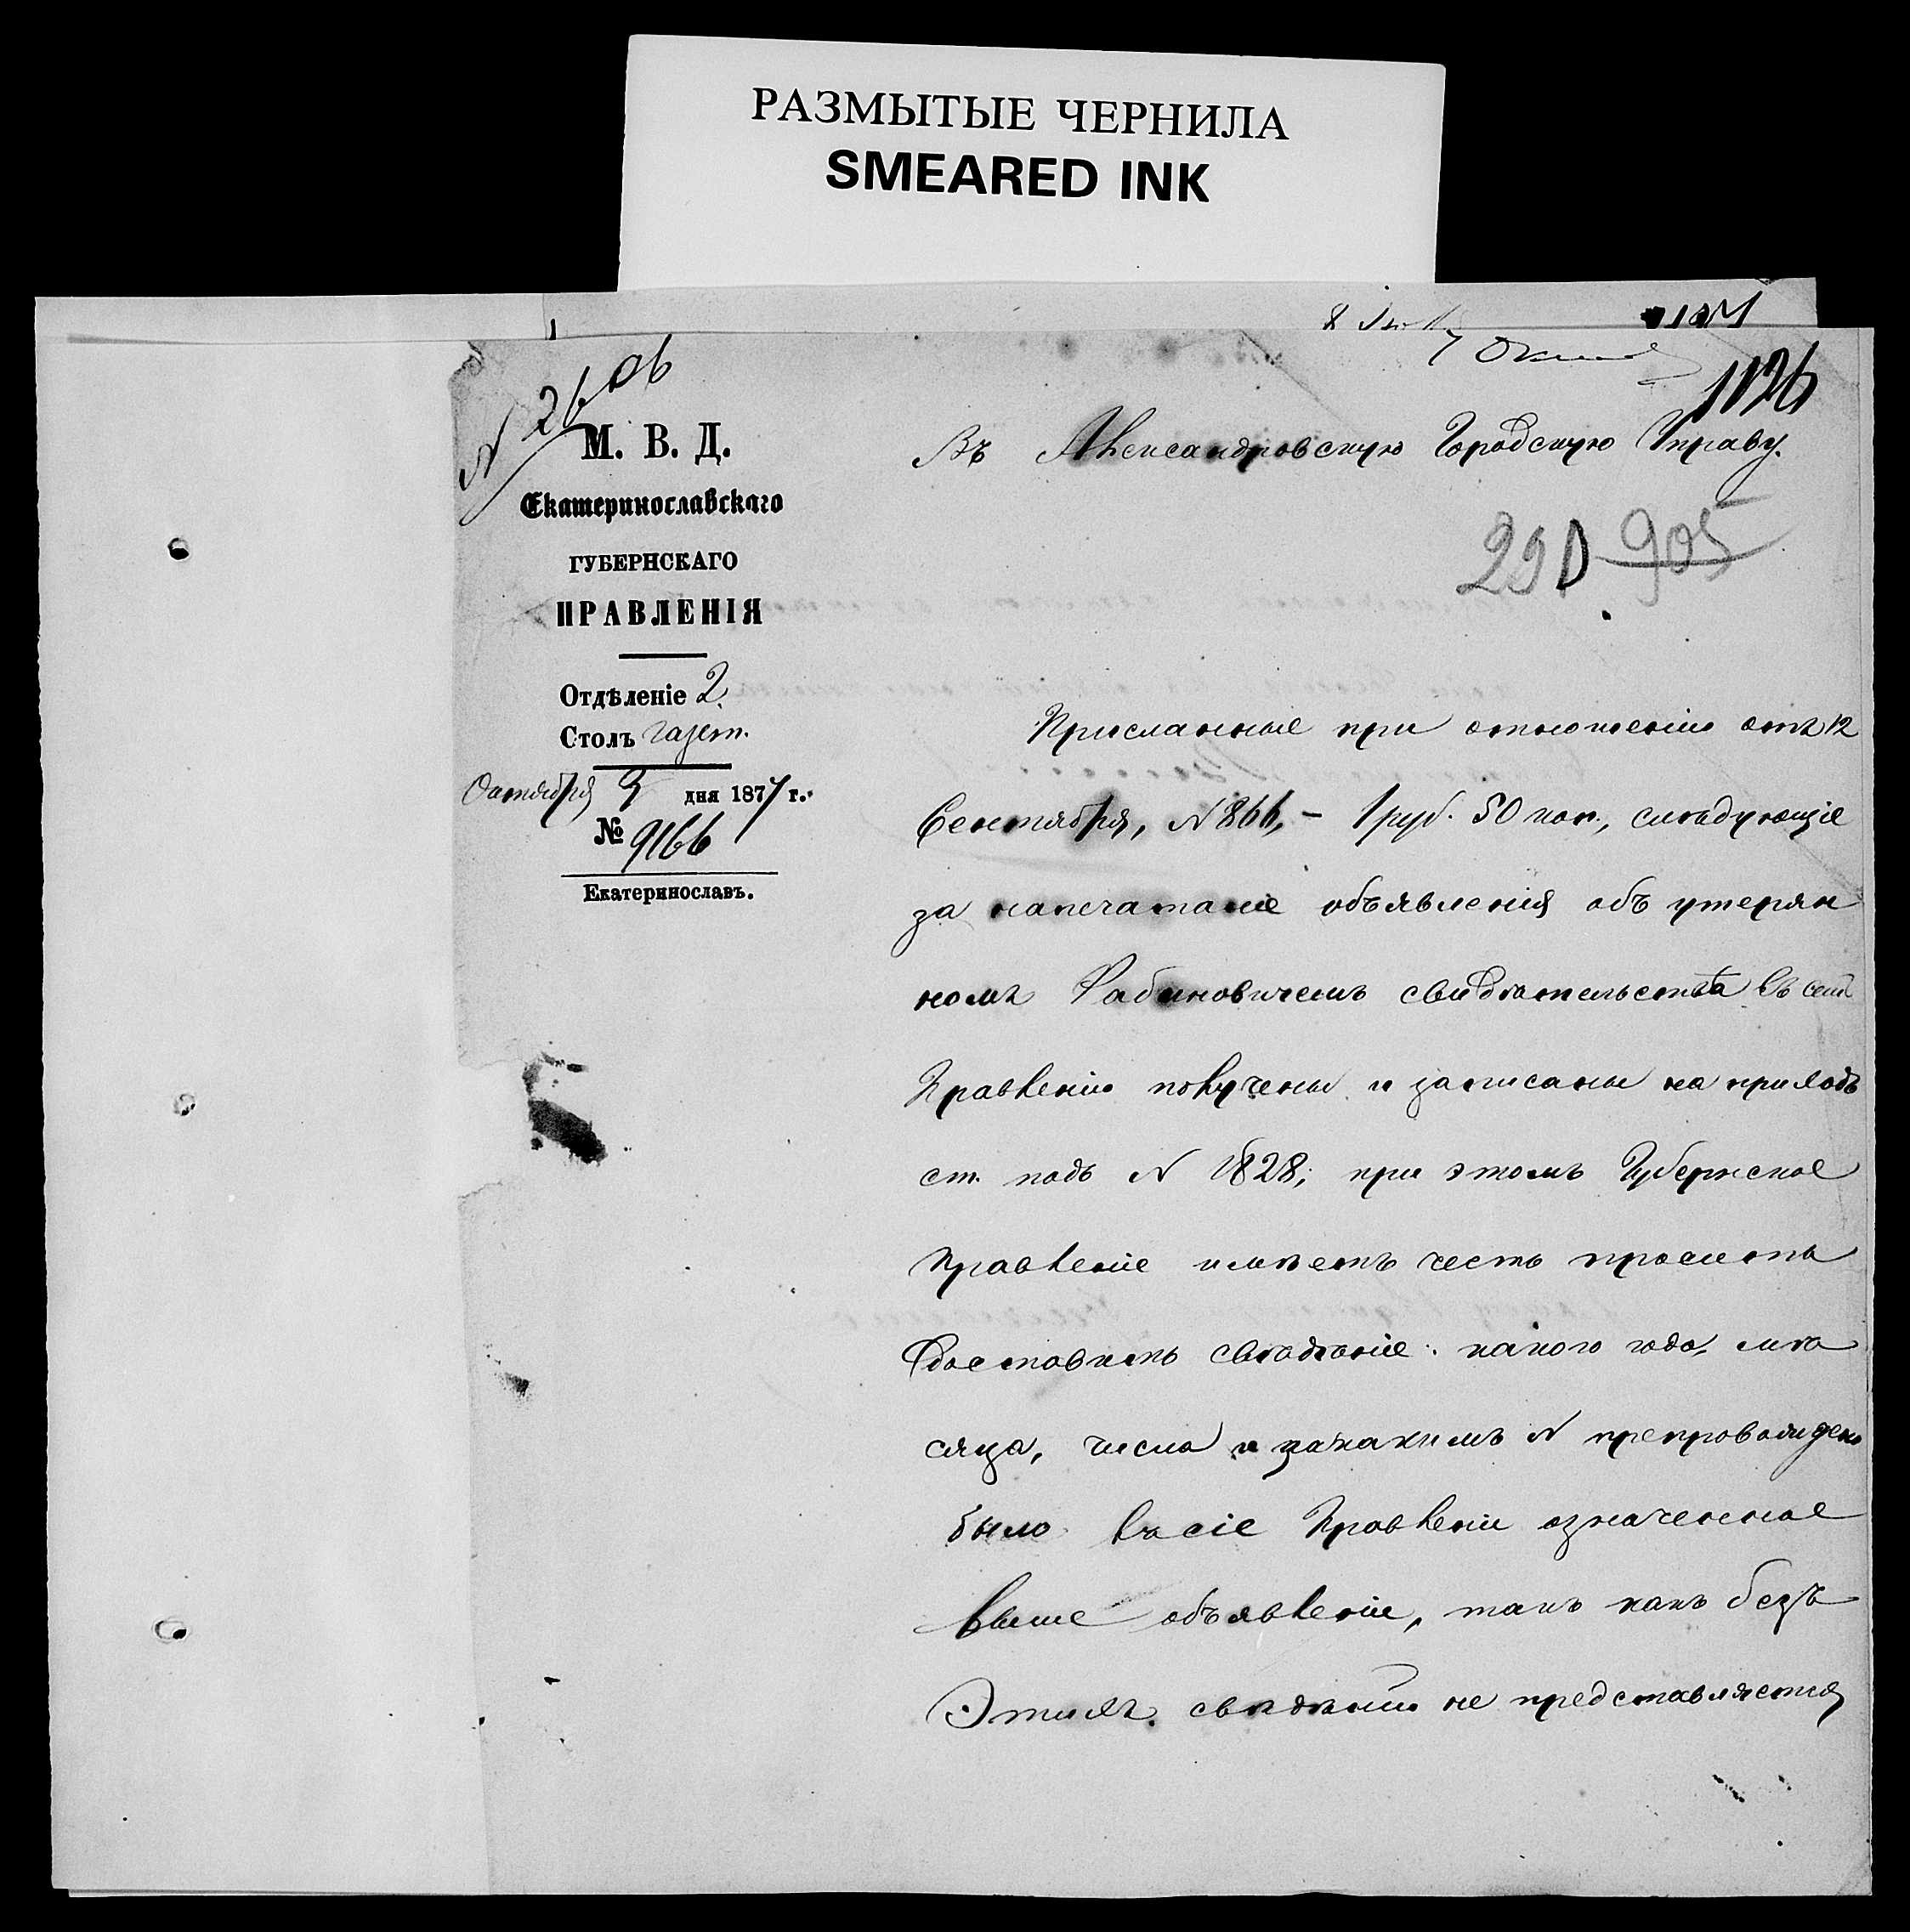 РАЗМЫТЫЕ ЧЕРНИЛА
SMEARED INK
1126
N 2606
М. В. Д.
Екатеринославскаго
ГУБЕРНСКАГО
ПРАВЛЕНІЯ
Отдѣленіе 2.
Столъ газет.
Октября 3 дня 1877 г.
№ 9166
Екатеринославъ.
Въ Александровскую Городскую Управу.
29 905
Присланные при отношеніи отъ 12
Сентября, N 866, - 1 руб. 50 коп., слѣдующіе
за напечатаніе объявленія объ утерян
номъ Рабиновичемъ свидѣтельствѣ въ семъ
Правленіи получены и записаны на приходъ
ст. подъ N 1828; при этомъ Губернское
Правленіе имѣетъ честь просить
доставить свѣдѣніе: какого года, мѣ
сяца, числа и за какимъ N препровождено
было въ сіе Правленіе означенное
выше объявленіе, такъ какъ безъ
этихъ свѣдѣній не представляется